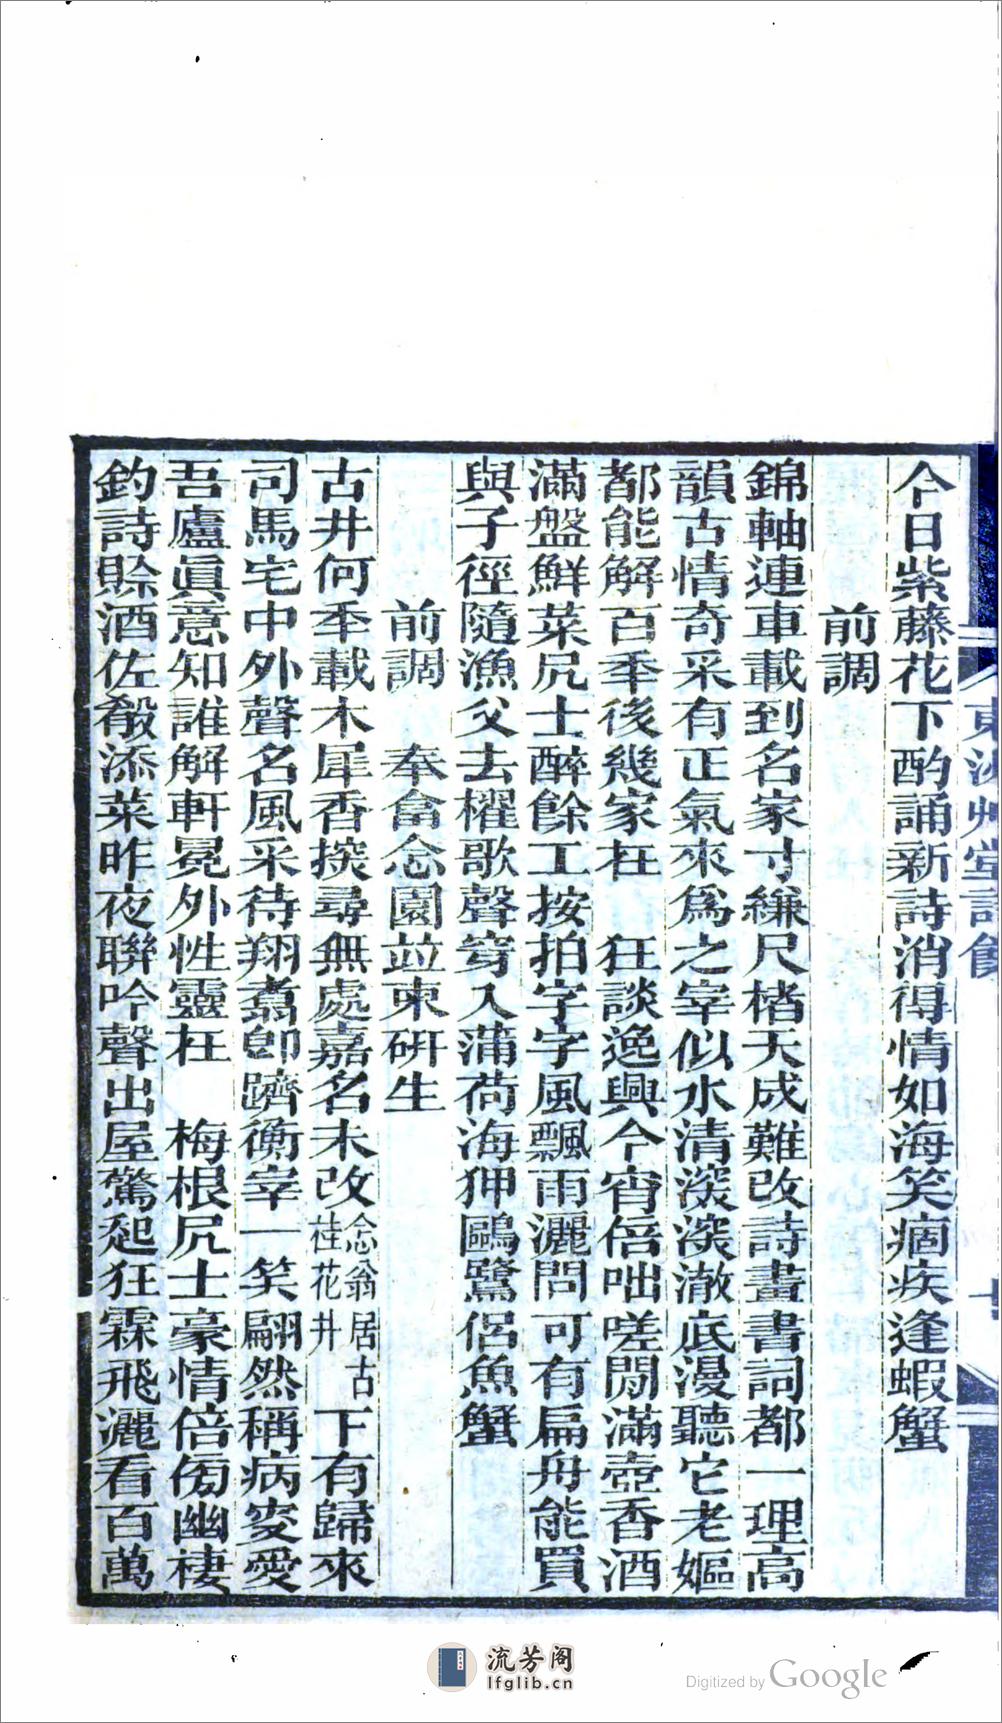 今日紫藤花下酌誦新詩消得情如海笑痼疾逢蝦蟹
前調
錦軸連車載到名家寸縑尺楮天成難改詩畫書詞都一理高
韻古情奇采有正氣來爲之宰似水清深深澈底漫聽它老嫗
都能解百季後幾家在　狂談逸興今宵倍咄嗟閒滿壺香酒
滿盤鮮菜凥士醉餘工按拍字字風飄雨灑問可有扁舟能買
與子徑隨漁父去櫂歌聲穿入蒲荷海狎鷗鷺侶魚蟹
前調　奉畣念園竝柬研生
古井何季載木犀香𢱢尋無處嘉名未改念翁居古桂花井下有歸來
司馬宅中外聲名風采待翔翥卽躋衡宰一笑翩然稱病叜愛
吾廬眞意知誰解軒冕外性靈在　梅根凥士豪情倍傍幽棲
釣詩賒酒佐殽添菜昨夜聯吟聲出屋驚起狂霖飛灑看百萬
流芳阁
lfglib.cn
Digitized by Google